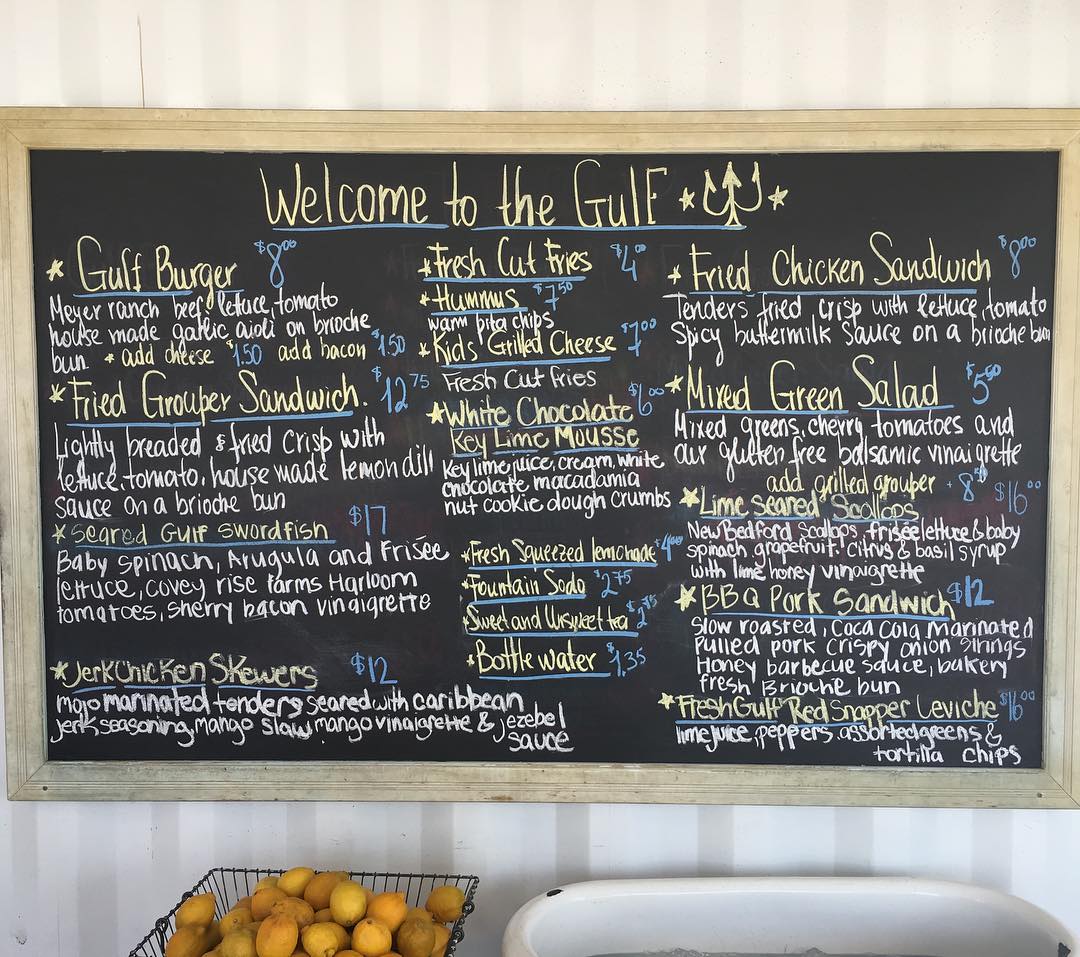 Welcome to the Gulf
* Gulf Burger $8.00
Meyer ranch beef, lettuce, tomato
house made garlic aioli on brioche
bun * add cheese $1.50 add bacon $1.50
* Fried Grouper Sandwich. $12.75
Lightly breaded & fried crisp with
lettuce, tomato, house made lemon dill
sauce on a brioche bun
* Seared Gulf Swordfish $17
Baby Spinach, Arugula and Frisée
lettuce, covey rise farms Harloom
tomatoes, sherry bacon vinaigrette
* Jerk Chicken Skewers $12
mojo marinated tenders seared with caribbean
jerk seasoning, mango slaw, mango vinaigrette & jezebel
sauce
* Fresh Cut Fries $4.00
* Hummus $7.50
warm pita chips
* Kids Grilled Cheese $7.00
Fresh Cut fries
* White Chocolate $6.00
Key Lime Mousse
Key lime juice, cream, white
chocolate macadamia
nut cookie dough crumbs
* Fresh Squeezed lemonade $4.00
* Fountain Soda $2.75
* Sweet and Unsweet tea $2.75
* Bottle Water $1.35
* Fried Chicken Sandwich $8.00
Tenders fried crisp with lettuce, tomato
Spicy buttermilk sauce on a brioche bun
* Mixed Green Salad $5.50
Mixed greens, cherry tomatoes and
our gluten free balsamic vinaigrette
add grilled grouper + 8
* Lime Seared Scallops $16.00
New Bedford Scallops, frisée lettuce & baby
spinach, grapefruit, citrus & basil syrup
with lime honey vinaigrette
* BBQ Pork Sandwich $12
Slow roasted, Coca Cola Marinated
Pulled pork crispy onion strings
Honey barbecue sauce, bakery
fresh Brioche bun
* Fresh Gulf Red Snapper Ceviche $16.00
lime juice, peppers, assorted greens &
tortilla chips